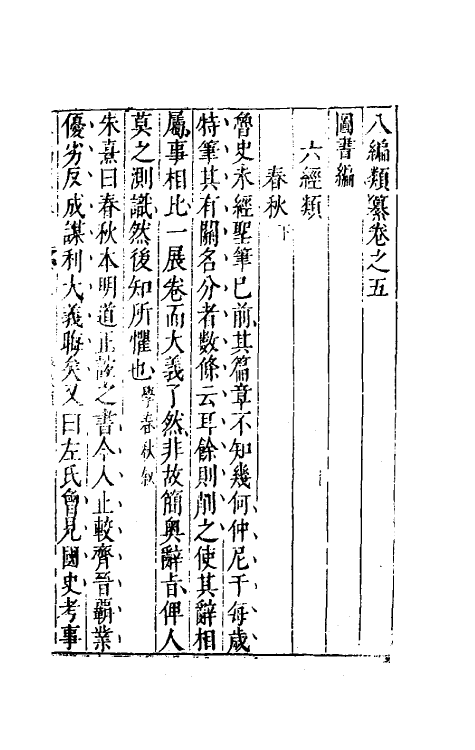 八編類纂卷之五
圖書編
六經類
春秋下
魯史未經聖筆已前其篇章不知幾何仲尼于每歲
特筆其有關名分者數條云耳餘則削之使其辭相
屬事相比一展卷而大義了然非故簡奧辭旨俾人
莫之測識然後知所懼也學春秋敘
朱熹曰春秋本明道正誼之書今人止較齊晉霸業
優劣反成謀利大義晦矣又曰左氏曾見國史考事